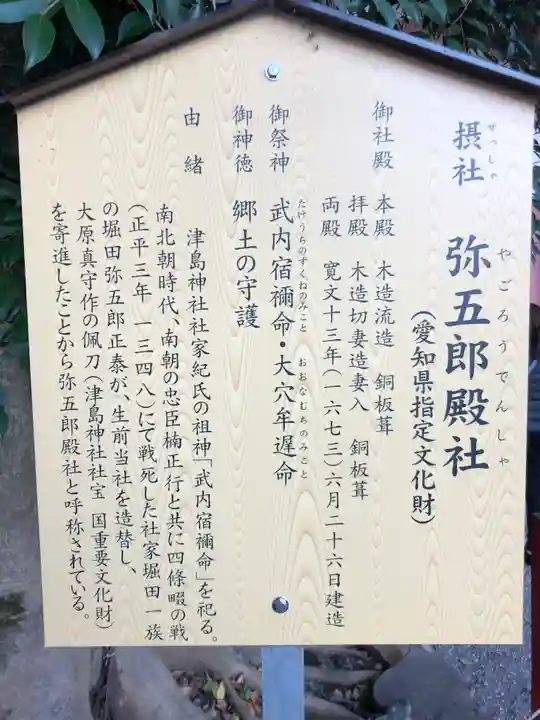 せっしゃ やごろうでんしゃ
摂社 弥五郎殿社
(愛知県指定文化財)
御社殿 本殿 木造流造 銅板葺
拝殿 木造切妻造妻入 銅板葺
両殿 寛文十三年(一六七三)六月二十六日建造
たけうちのすくねのみこと おおなむちのみこと
御祭神 武内宿禰命・大穴牟遅命
御神徳 郷土の守護
由緒 津島神社社家紀氏の祖神「武内宿禰命」を祀る。
南北朝時代、南朝の忠臣楠正行と共に四條畷の戦
(正平三年 一三四八)にて戦死した社家堀田一族
の堀田弥五郎正泰が、生前当社を造替し、
大原真守作の佩刀(津島神社社宝 国重要文化財)
を寄進したことから弥五郎殿社と呼称されている。